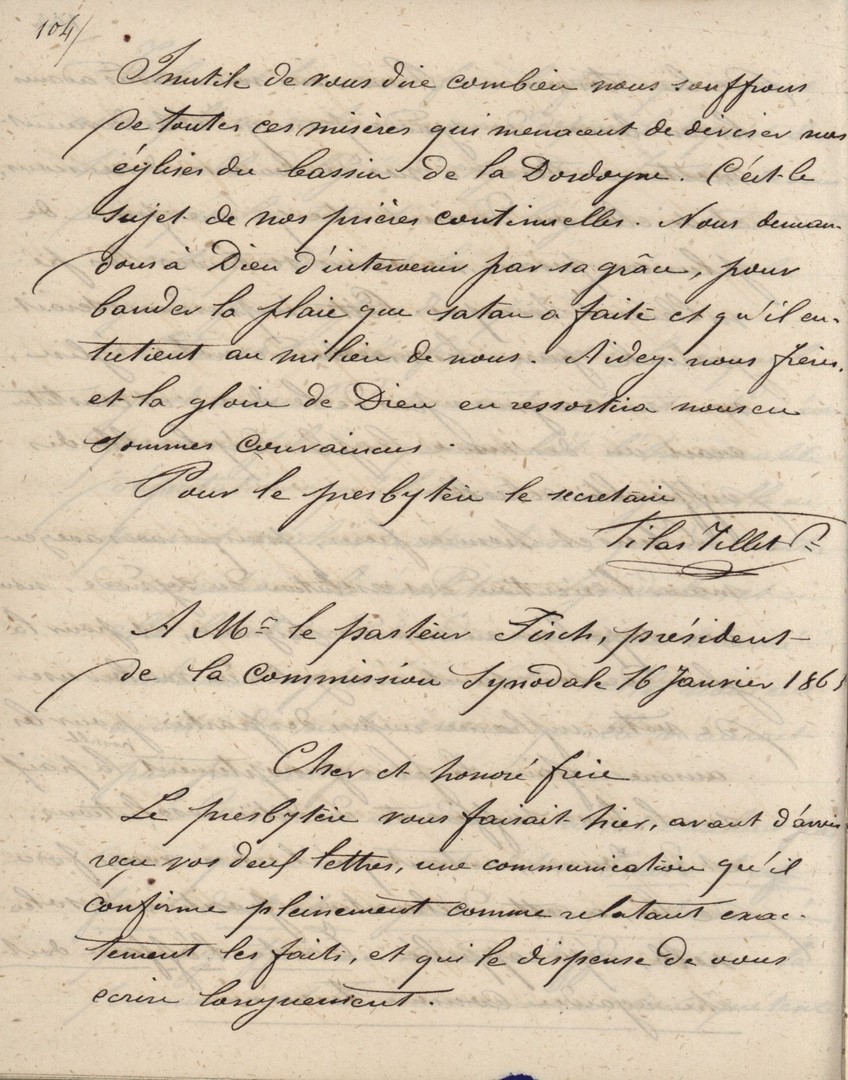 104/
Inutile de vous dire combien nous souffrons
de toutes ces misères qui menacent de diviser nos
églises du bassin de la Dordogne. C'est le
sujet de nos prières continuelles. Nous deman-
dons à Dieu d'intervenir par sa grâce, pour
bander la plaie que satan a faite et qu'il en-
tretient au milieu de nous. Aidez-nous frères,
et la gloire de Dieu en ressortira nous en
sommes convaincus.
Pour le presbytère le secrétaire
Tillet
A Mr le pasteur Fisch, président
de la Commission Synodale 16 Janvier 186
Cher et honoré frère
Le presbytère vous faisait hier, avant d'avoir
reçu vos deux lettres, une communication qu'il
confirme pleinement comme relatant exac-
tement les faits, et qui le dispense de vous
écrire longuement.